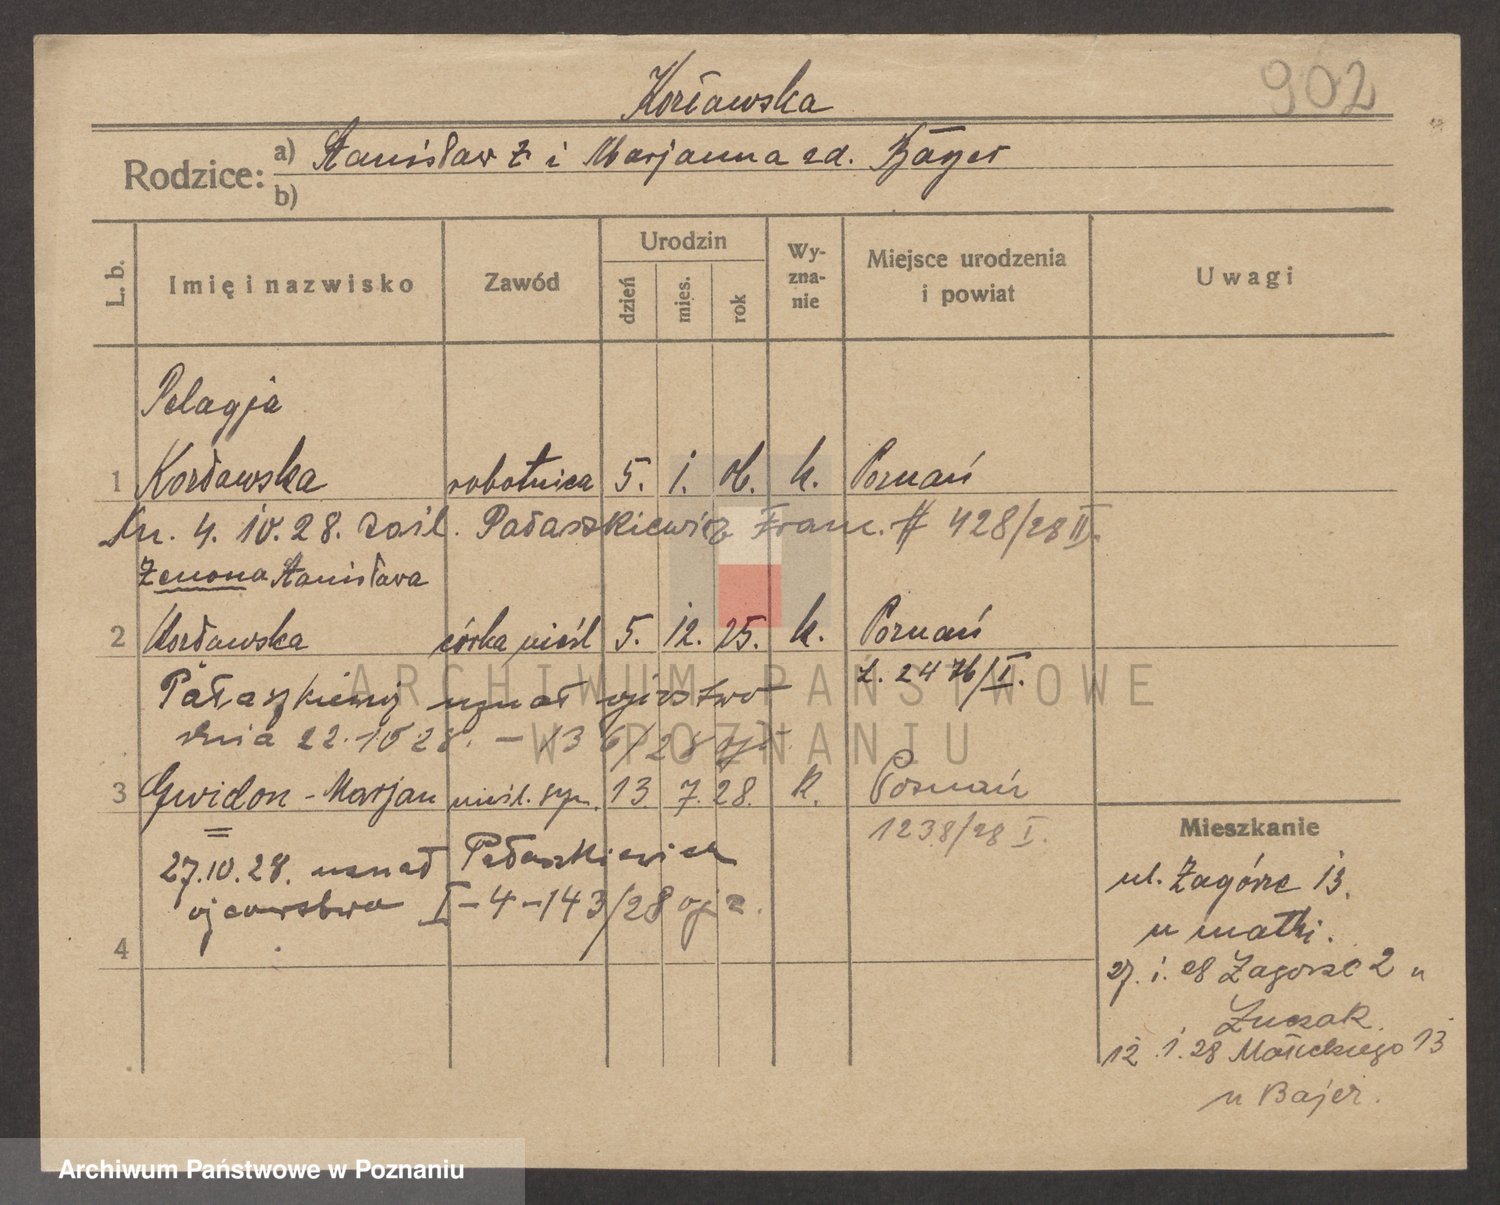 Korławska
902
Rodzice: a) Stanisław ż i Marjanna zd. Bayer
b)
L. b. Imię i nazwisko Zawód Urodzin dzień mies. rok Wyznanie Miejsce urodzenia i powiat Uwagi
Pelagja
1 Korławska robotnica 5. 1. 06. k. Poznań
4. 10. 28. zaśl. Pałaszkiewicz Franc. # 428/28 II.
Zenona Stanisława
2 Korławska córka nieśl 5. 12. 25. k. Poznań
Z. 2476/I.
Pałaszkiewicz uznał ojcostwo
dnia 22.10 28. –
3 Gwidon - Marjan nieśl. syn. 13. 7. 28. k. Poznań
1238/28 I.
27.10.28. uznał Pałaszkiewicz
ojcowstwo I-4-143/28 ojc.
4
Mieszkanie
ul. Zagórze 13.
u matki.
27. 1. 28 Zagorze 2 u
Łuczak
12. 1. 28 Małeckiego 13
u Bajer.
ARCHIWUM PAŃSTWOWE
W POZNANIU
Archiwum Państwowe w Poznaniu